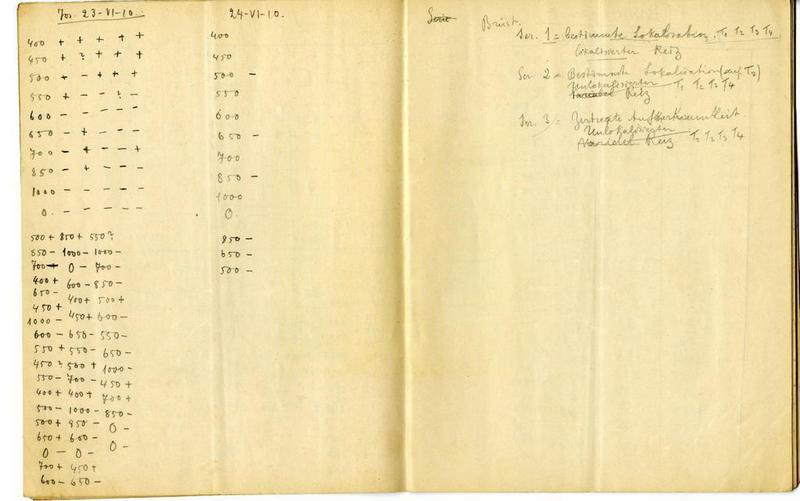 23-VI-10.
400 + + + + +
450 + ? + + +
500 + - + + +
550 + - - ? -
600 - - - - -
650 - + - - -
700 - + - - +
850 - + - - -
1000 - - - - -
0. - - - - -
500 + 850 + 550 ?
850 - 1000 - 1000 -
700 + 0 - 700 -
400 + 600 - 850 -
650 - 400 + 500 +
450 + 450 + 600 -
1000 -
600 - 650 - 550 -
550 + 550 - 650 -
450 ? 500 + 1000 -
550 - 700 - 450 +
400 + 400 + 700 +
500 - 1000 - 850 -
500 + 850 - 0 -
650 + 600 - 0 -
0 - 0 -
700 + 450 +
600 - 650 -
24-VI-10.
400
450
500 -
550
600
650 -
700
850 -
1000
0.
850 -
650 -
500 -
Serie
Ser. 1 = Bestimmte Lokalisation, T1 T2 T3 T4
Lokalisierter Reiz
Ser 2 = Bestimmte Lokalisation (auf T2)
Unlokalisierter T1 T2 T3 T4
Reiz
Ser. 3 = Zerstreute Aufmerksamkeit
Unlokalisierter
Reiz T1 T2 T3 T4